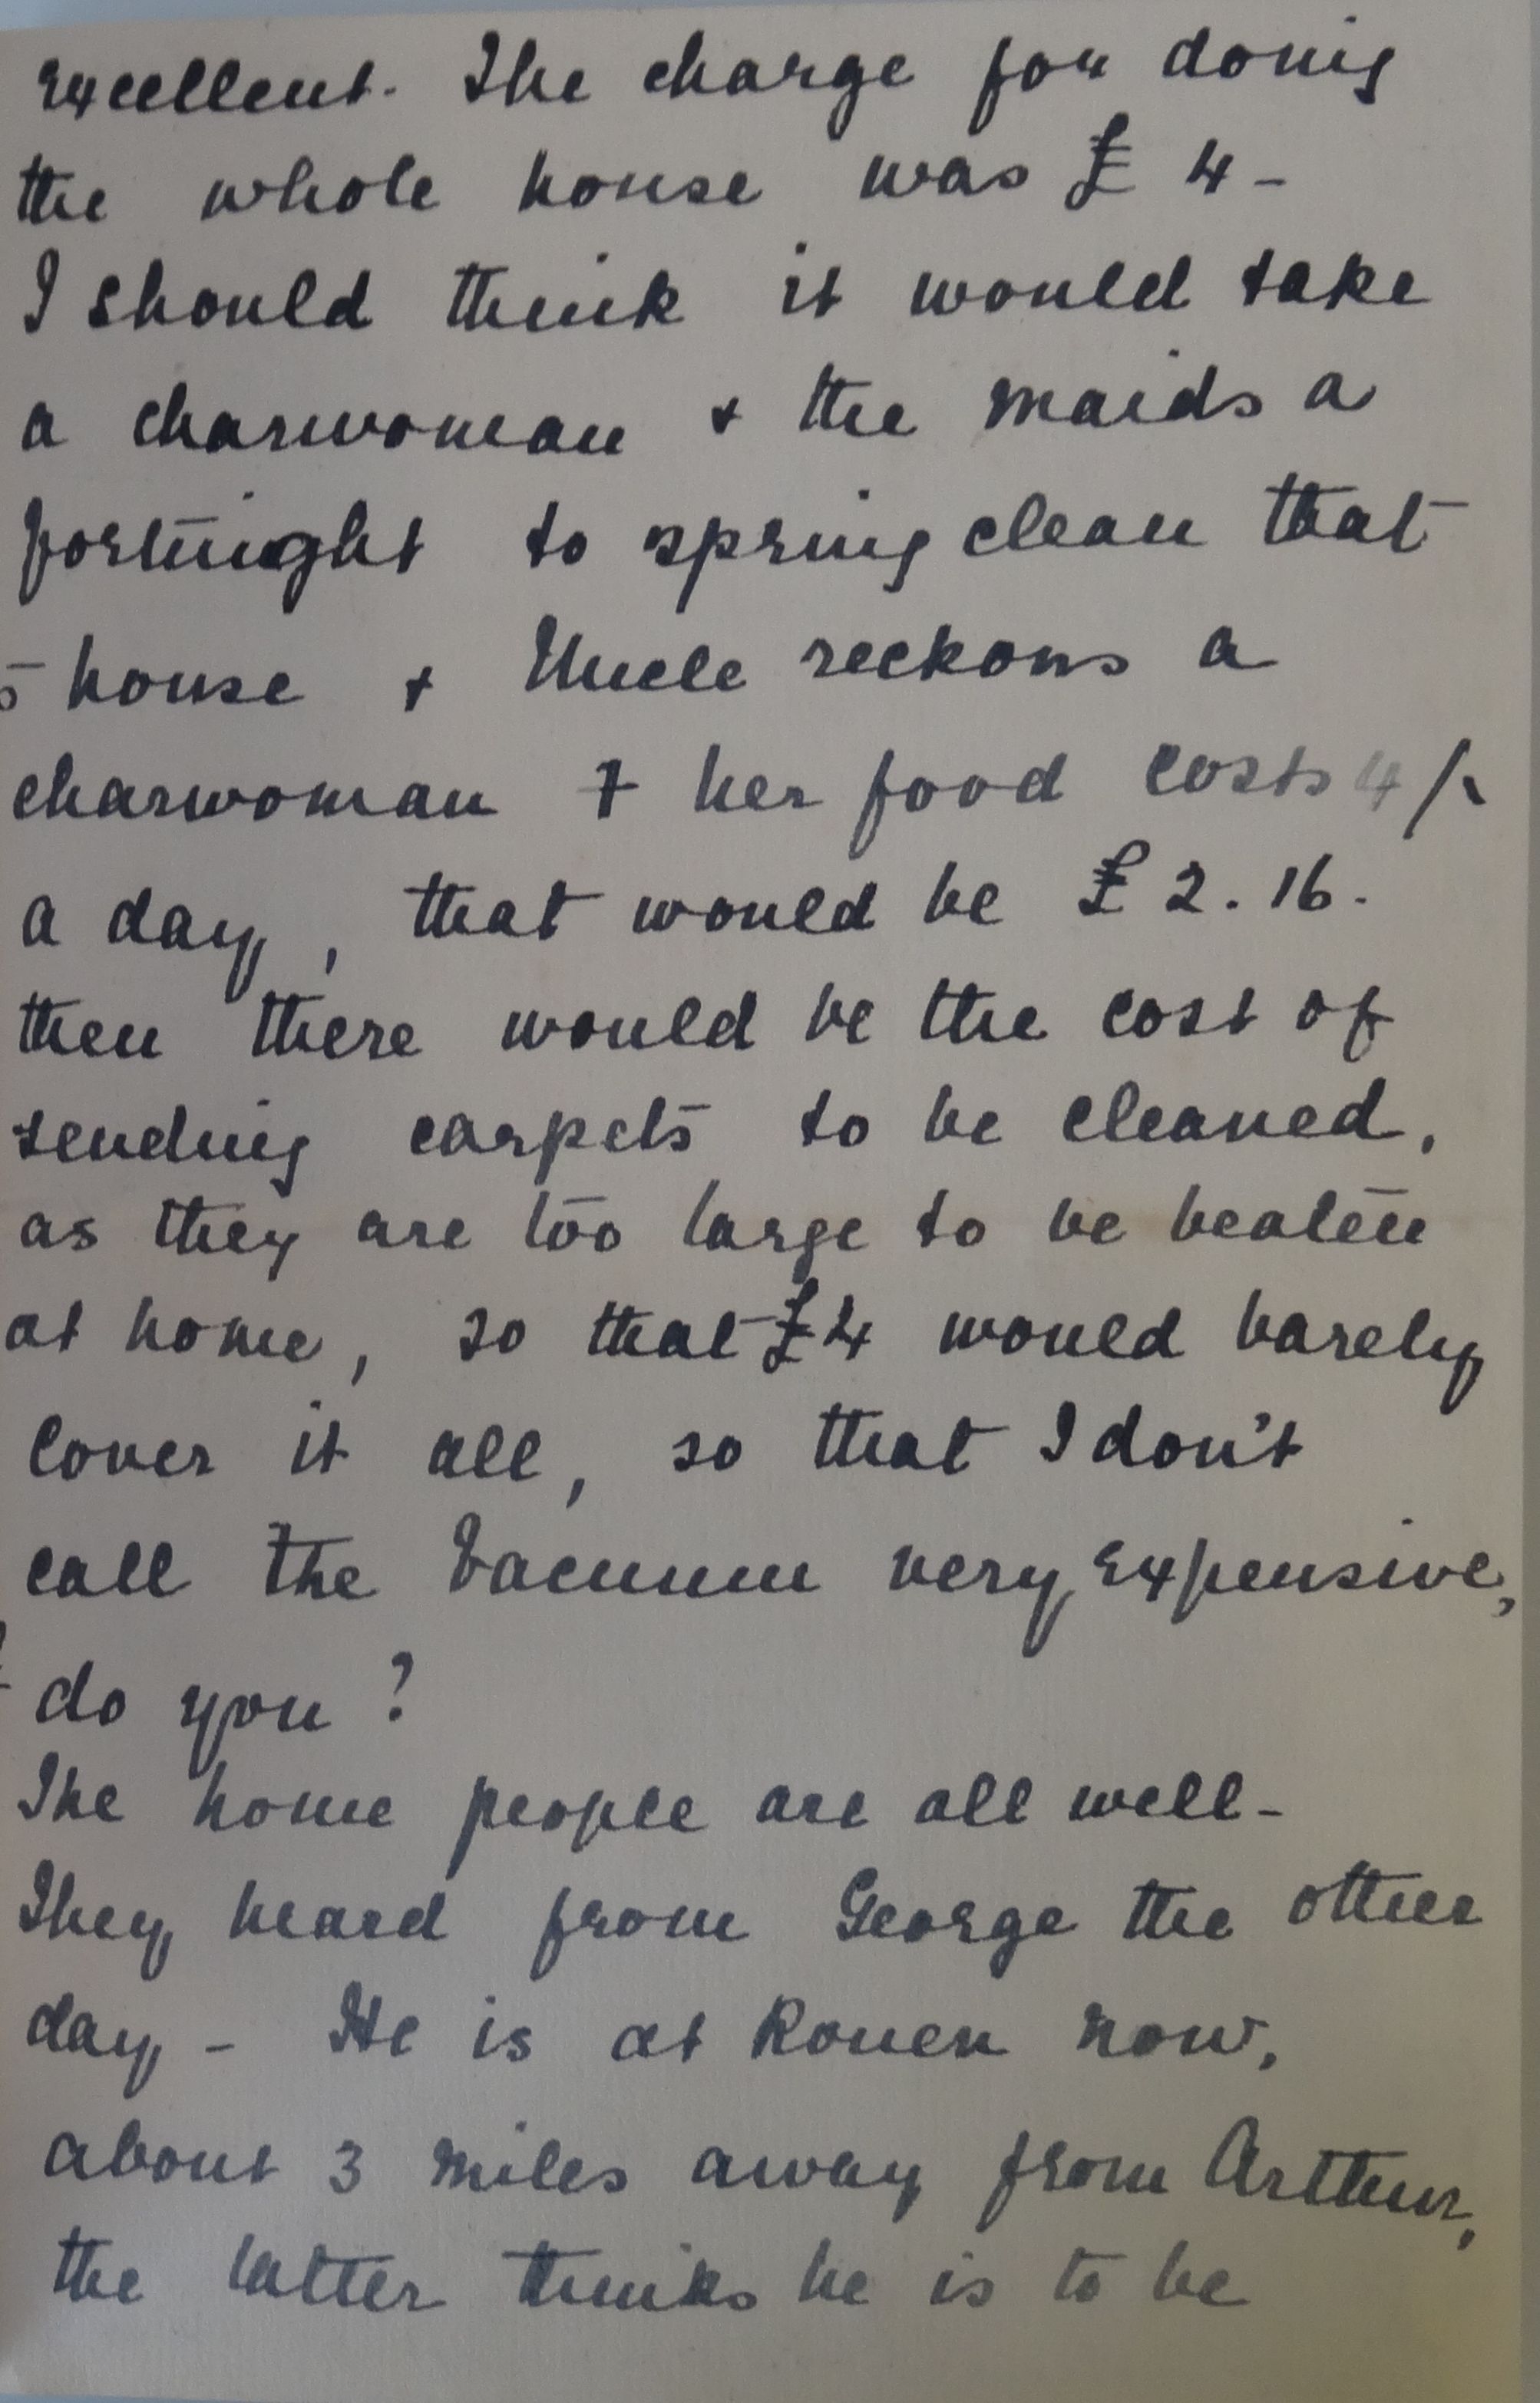 excellent. The charge for doing
the whole house was £ 4 -
I should think it would take
a charwoman + the maids a
fortnight to spring clean that
house + Uncle reckons a
charwoman + her food costs 4/-
a day, that would be £ 2. 16.
then there would be the cost of
sending carpets to be cleaned,
as they are too large to be beaten
at home, so that £4 would barely
cover it all, so that I don't
call the Vacuum very expensive,
do you?
The home people are all well -
They heard from George the other
day - He is at Rouen now,
about 3 miles away from Arthur,
the latter thinks he is to be